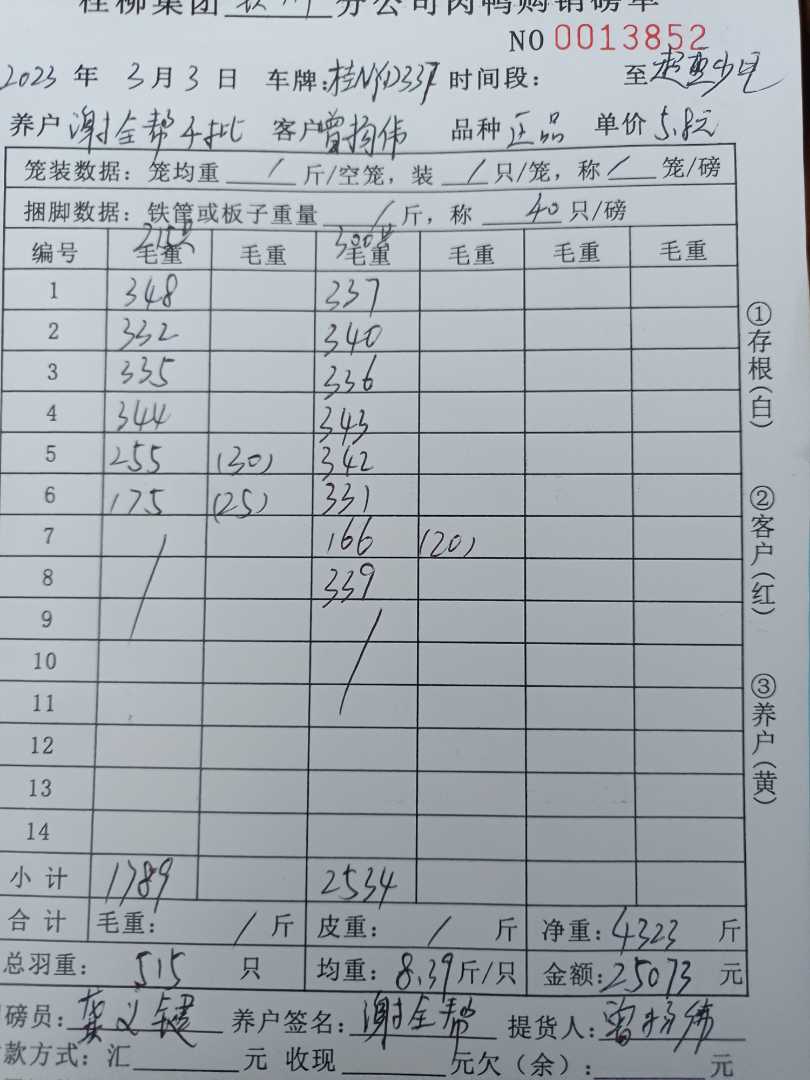 桂柳集团 分公司肉鸭购销磅单
NO 0013852
2023 年 3 月 3 日 车牌:桂NYD337 时间段: 至
养户 谢全帮 客户 曾扬伟 品种 正品 单价 5.8元
笼装数据: 笼均重 / 斤/空笼, 装 / 只/笼, 称 / 笼/磅
捆脚数据: 铁筐或板子重量 / 斤, 称 40 只/磅
215只 300只
编号 毛重 毛重 毛重 毛重 毛重 毛重
1 348 337
2 332 340
3 335 336
4 344 343
5 255 (30) 342
6 175 (25) 331
7 166 (20)
8 339
9
10
11
12
13
14
小计 1789 2534
合计 毛重: / 斤 皮重: / 斤 净重: 4323 斤
总羽重: 515 只 均重: 8.39 斤/只 金额: 25073 元
磅员: 龚义键 养户签名: 谢全帮 提货人: 曾扬伟
款方式: 汇 元 收现 元欠(余): 元
①存根(白)
②客户(红)
③养户(黄)